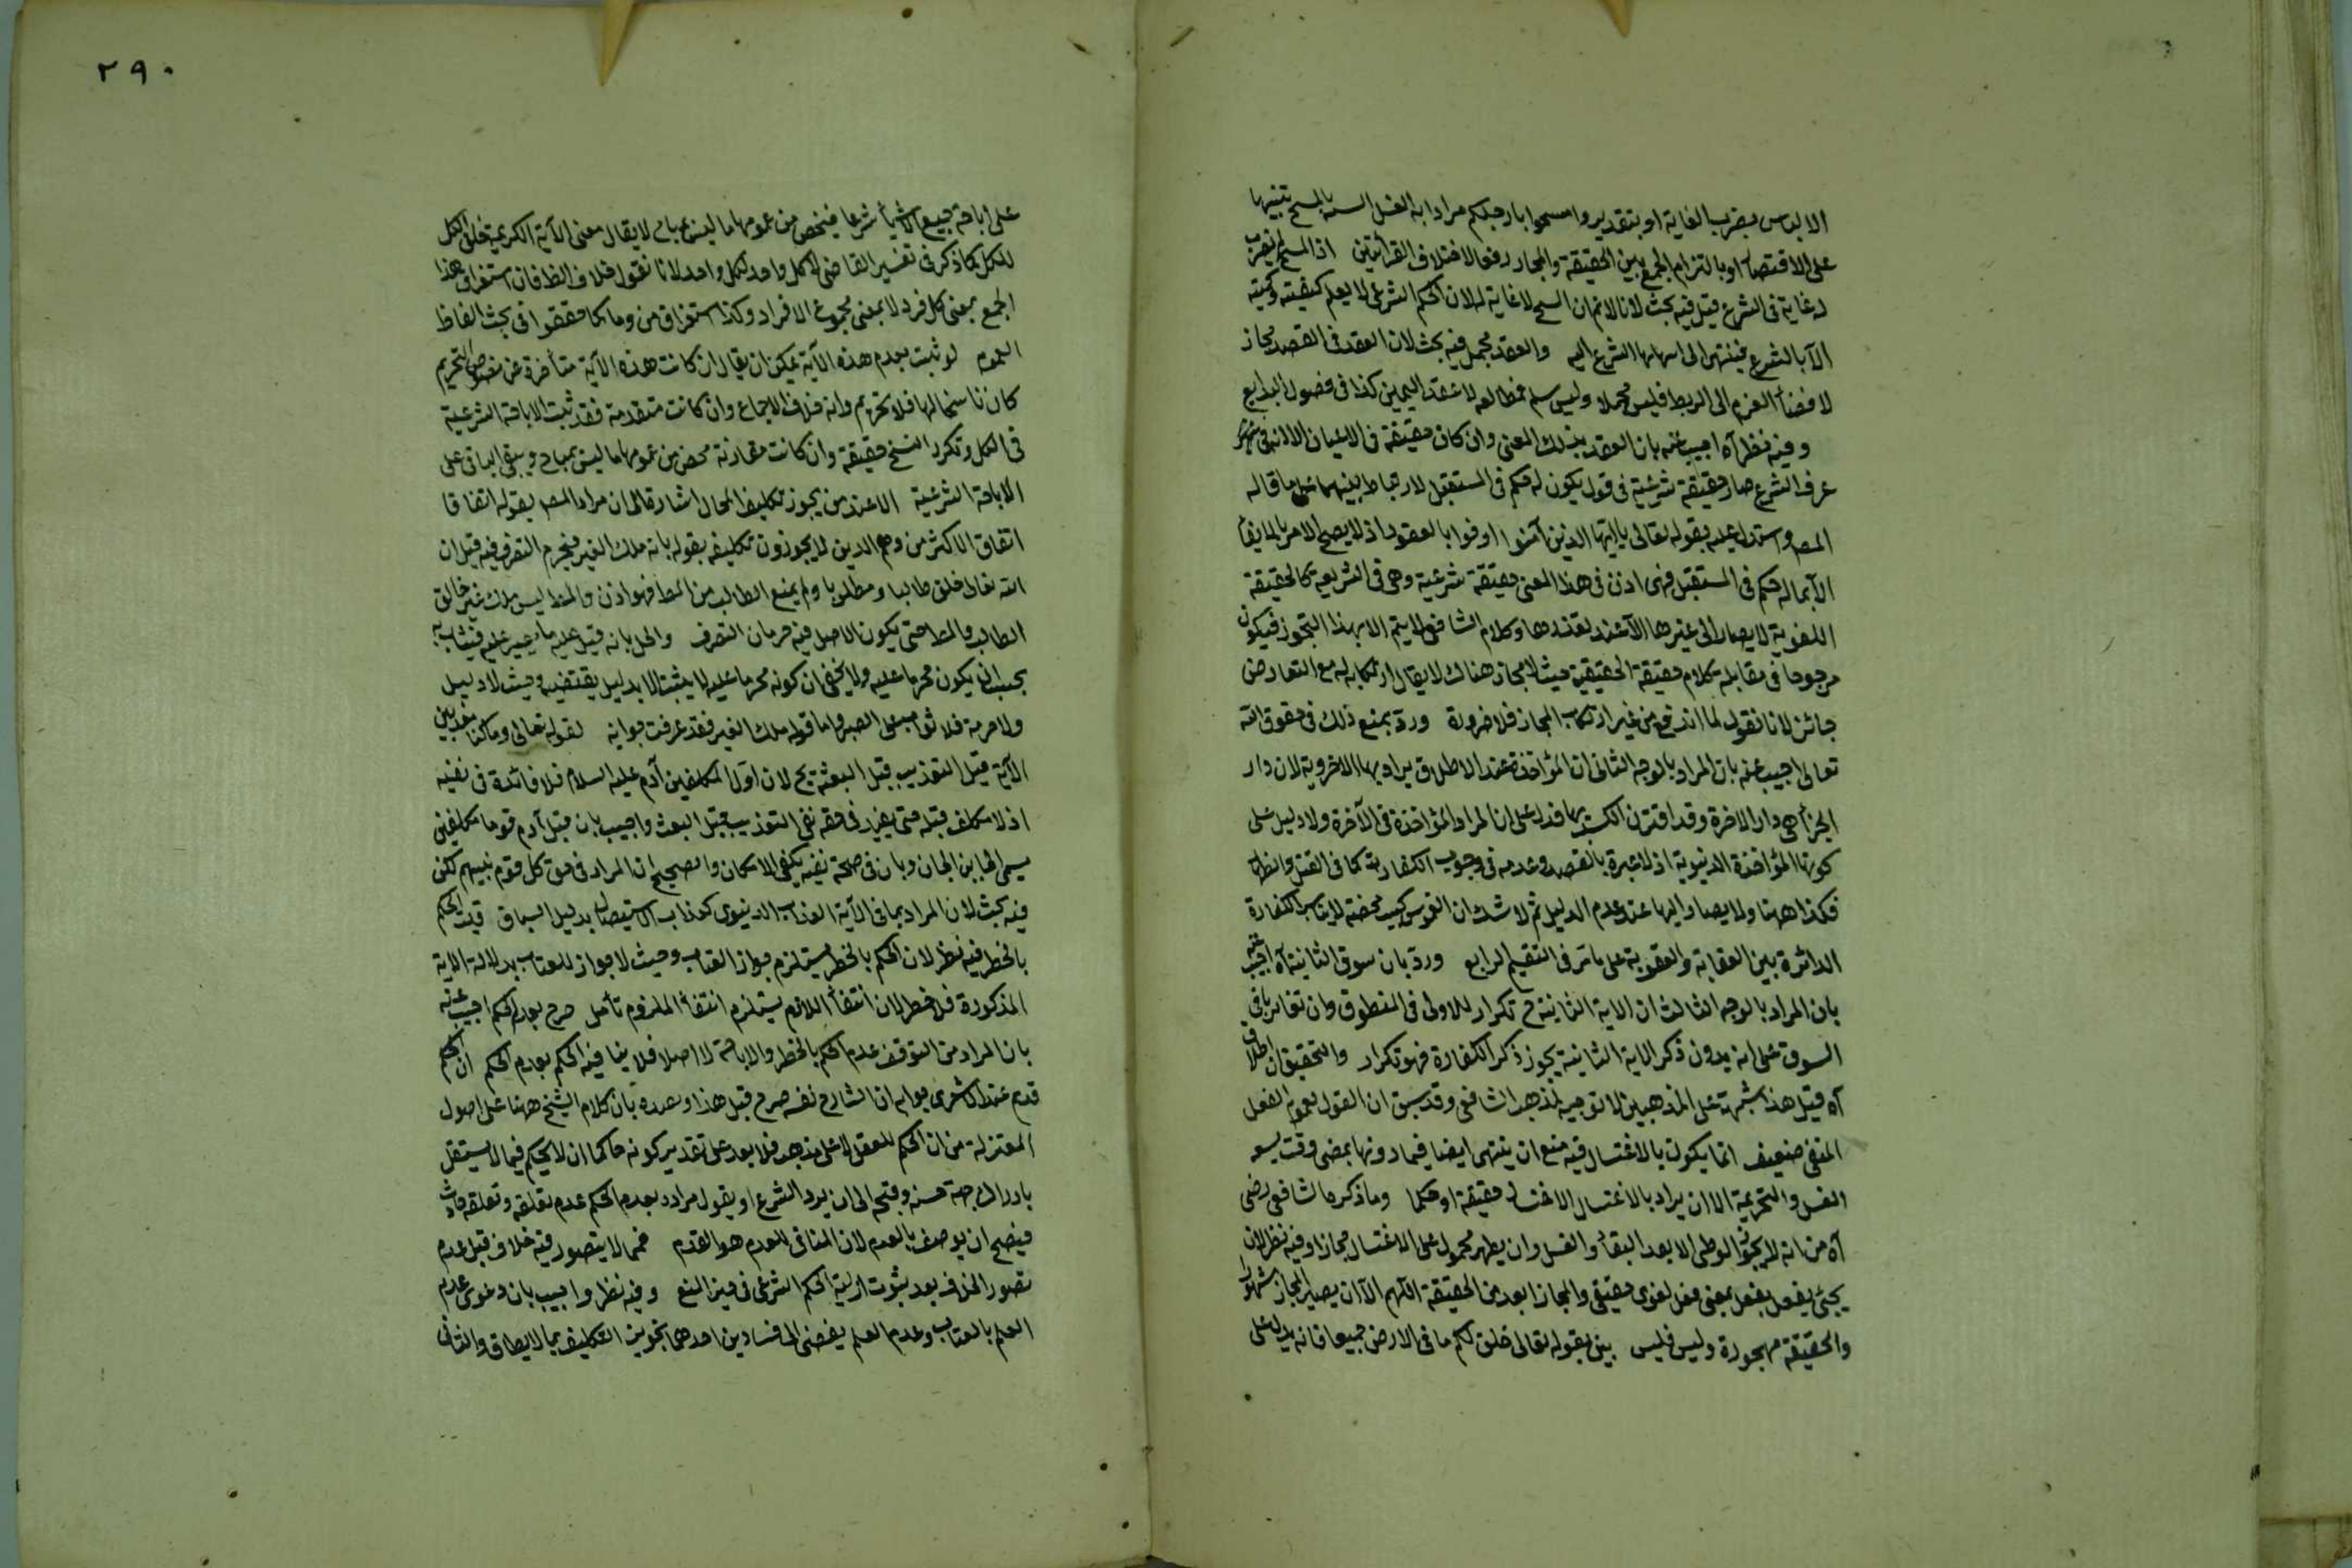 الالباس بضرب الغاية او بتقدير وامسحوا بارجلكم مرادا به الغسل السمه بالمسح تنبيها
على الاقتصاد او بالتزام الجمع بين الحقيقة والمجاز رفعا لاختلاف القرائتين اذ المسح لم يضرب
له غاية فى الشرع قيل فيه بحث لانا لا نم ان المسح لا غاية له لان الحكم الشرعى لا يعلم كيفيته وكميته
الا بالشرع فينتهى الى انهاء الشرع اليه والعقد مجمل فيه بحث لان العقد فى القصد مجاز
لافضاء العزم الى الربط فليس مجملا وليس سلم فمطالعه لا عقد اليمين كذا فى فصول البدايع
وفيه نظر آه اجيب عنه بان العقد بذلك المعنى وان كان حقيقة فى الاعيان الا انه فى
عرف الشرع صار حقيقة شرعية فى قول يكون له حكم فى المستقبل لارتباط بينهما على ما قاله
المصر واستدل عليه بقوله تعالى يا ايها الذين آمنوا اوفوا بالعقود اذ لا يصح الامر بالايفاء
الا بما له حكم فى المستقبل فهى اذن فى هذا المعنى حقيقة شرعية وهى فى الشريعة كالحقيقة
اللغوية لا يصار الى غيرها الا عند تعذرها وكلام الشافعى لا يتم الا بهذا التجوز فيكون
مرجوحا فى مقابلة كلام حقيقة الحقيقية حيث لا مجاز هناك لا يقال ارتكابه له مع التعارض
جائز لانا نقول لما اندفع من غير ارتكاب المجاز فلا ضرورة ورد بمنع ذلك فى حقوق الله
تعالى اجيب عنه بان المراد بالوجه الثانى ان المؤاخذة عند الاطلاق يراد بها الاخروية لان دار
الجزاء هى دار الاخرة وقد اقترن الكسب بها فدل على ان المراد المؤاخذة فى الآخرة ولا دليل على
كونها المؤاخذة الدنيوية اذ لا عبرة بالقصد وعدمه فى وجوب الكفارة كما فى القتل وانظرا
فكذا ههنا ولا يصار اليها عند عدم الدليل ثم لا شك ان الغموس كبيرة محضة لا يناسب الكفارة
الدائرة بين العقابة والعقوبة على ما مر فى التقسيم الرابع ورد بان سوق الثانية آه اجيب عنه
بان المراد بالوجه الثالث ان الاية الثانية ح تكرار للاولى فى المنطوق وان تغايرتا فى
السوق على انه بدون ذكر الاية الثانية يجوز ذكر الكفارة فهو تكرار والتحقيق ان اطلاق
آه قيل هذا شبهة على المذهبين لا توجيه لمذهب الشافعى وقد سبق ان القول بعموم الفعل
المنفى ضعيف انما يكون بالاغتسال فيه منع ان ينتهى ايضا فيما دونها بمضى وقت يسع
الغسل والتحريمة الا ان يراد بالاغتسال الاغتسال حقيقة او حكما وما ذكره الشافعى رضى
آه من انه لا يجوز الوطى الا بعد النقاء والغسل وان يطهر محمول على الاغتسال مجازا وفيه نظر لان
يجئ يفعل بفعل بمعنى فعل لغوى حقيقى والمجاز ابعد من الحقيقة اللهم الا ان يصير المجاز مشهورا
والحقيقة مهجورة وليس فليس بين بقوله تعالى خلق لكم ما فى الارض جميعا فانه يدل على
٢٩٠
على اباحة جميع الاشياء شرعا فيخص من عمومها ما ليس بمباح لا يقال معنى الآية الكريمة خلق الكل
للكل كما ذكر فى تفسير القاضى لا كل واحد لكل واحد لانا نقول خلاف الظ فان استغراق هذا
الجمع بمعنى كل فرد لا بمعنى مجموع الافراد وكذا استغراق من وما كما حققوا فى بحث الفاظ
العموم لو ثبت بعدم هذه الآية يمكن ان يقال ان كانت هذه الآية متأخرة عن نصوص التحريم
كان ناسخا لها فلا تحريم وانه خلاف الاجماع وان كانت متقدمة فقد ثبت الاباحة الشرعية
فى الكل وتكرر النسخ حقيقة وان كانت مقارنة مخص من عمومها ما ليس بمباح ويبقى الباقى على
الاباحة الشرعية الا عند من يجوز تكليف المحال اشارة الى ان مراد المصر بقوله اتفاقا
اتفاق الاكثر من وهم الذين لا يجوزون تكليفه بقوله بانه ملك الغير فيحرم التصرف فيه قيل ان
الله تعالى خلق طالبا ومطلوبا ولم يمنع الطالب من المط فهو اذن والمط ليس ملك غير خالق
الطالب والمط حتى يكون الاصل فيه حرمان التصرف والحل بانه قيل عليه ما
يجب ان يكون محرما عليه ولا يخفى ان كونه محرما عليه لا يثبت الا بدليل يقتضيه وحيث لا دليل
ولا حرمة فلا ثواب على الصبر واما قوله ملك الغير فقد عرفت جوابه لقوله تعالى وما كنا معذبين
الآية قيل التعذيب قبل البعثة مح لان اول المكلفين آدم عليه السلام فلا فائدة فى نفيه
اذ لا مكلف قبله حتى يفيد فى حقه نفى التعذيب قبل البعث واجيب بان قبل آدم قوما مكلفين
يسمى الجان بن الجان وبان فى صحة نفيه يكفى الامكان والصحيح ان المراد فى حق كل قوم نبيهم لكن
فيه بحث لان المراد بما فى الآية العذاب الدنيوى كعذاب الاستيصال بدليل السباق قيل الحكم
بالحظر فيه نظر لان الحكم بالحظر يستلزم جواز العقاب وحيث لا جواز للعقاب بدلالة الاية
المذكورة فلا حظر لان انتفاء اللازم يستلزم انتفاء الملزوم تأمل صرح بعدم الحكم اجيب عنه
بان المراد من التوقف عدم الحكم بالحظر والاباحة لا اصلا فلا ينافيه الحكم بعدم الحكم ان الحكم
قديم عند الاشعرى جوابه ان الشارح نفسه صرح قبل هذا وبعده بان كلام الشيخ ههنا على اصول
المعتزلة من ان الحكم للعقل لا على مذهبه فلا بعد على تقدير كونه حاكما ان لا يحكم فيما لا يستقل
بادراك جهة حسنه وقبحه الى ان يرد الشرع او يقول مراده بعدم الحكم عدم تعلقه وتعلقه حادث
فيصح ان يوصف بالعدم لان المنافى للعدم هو القدم فمما لا يتصور فيه خلاف قيل عدم
تصور الخلاف بعد ثبوت ازلية الحكم الشرعى فى حيز المنع وفيه نظر واجيب بان دعوى عدم
العلم بالعقاب وعدم العلم يفضى الى فسادين احدهما تجويز التكليف بما لا يطاق والثانى